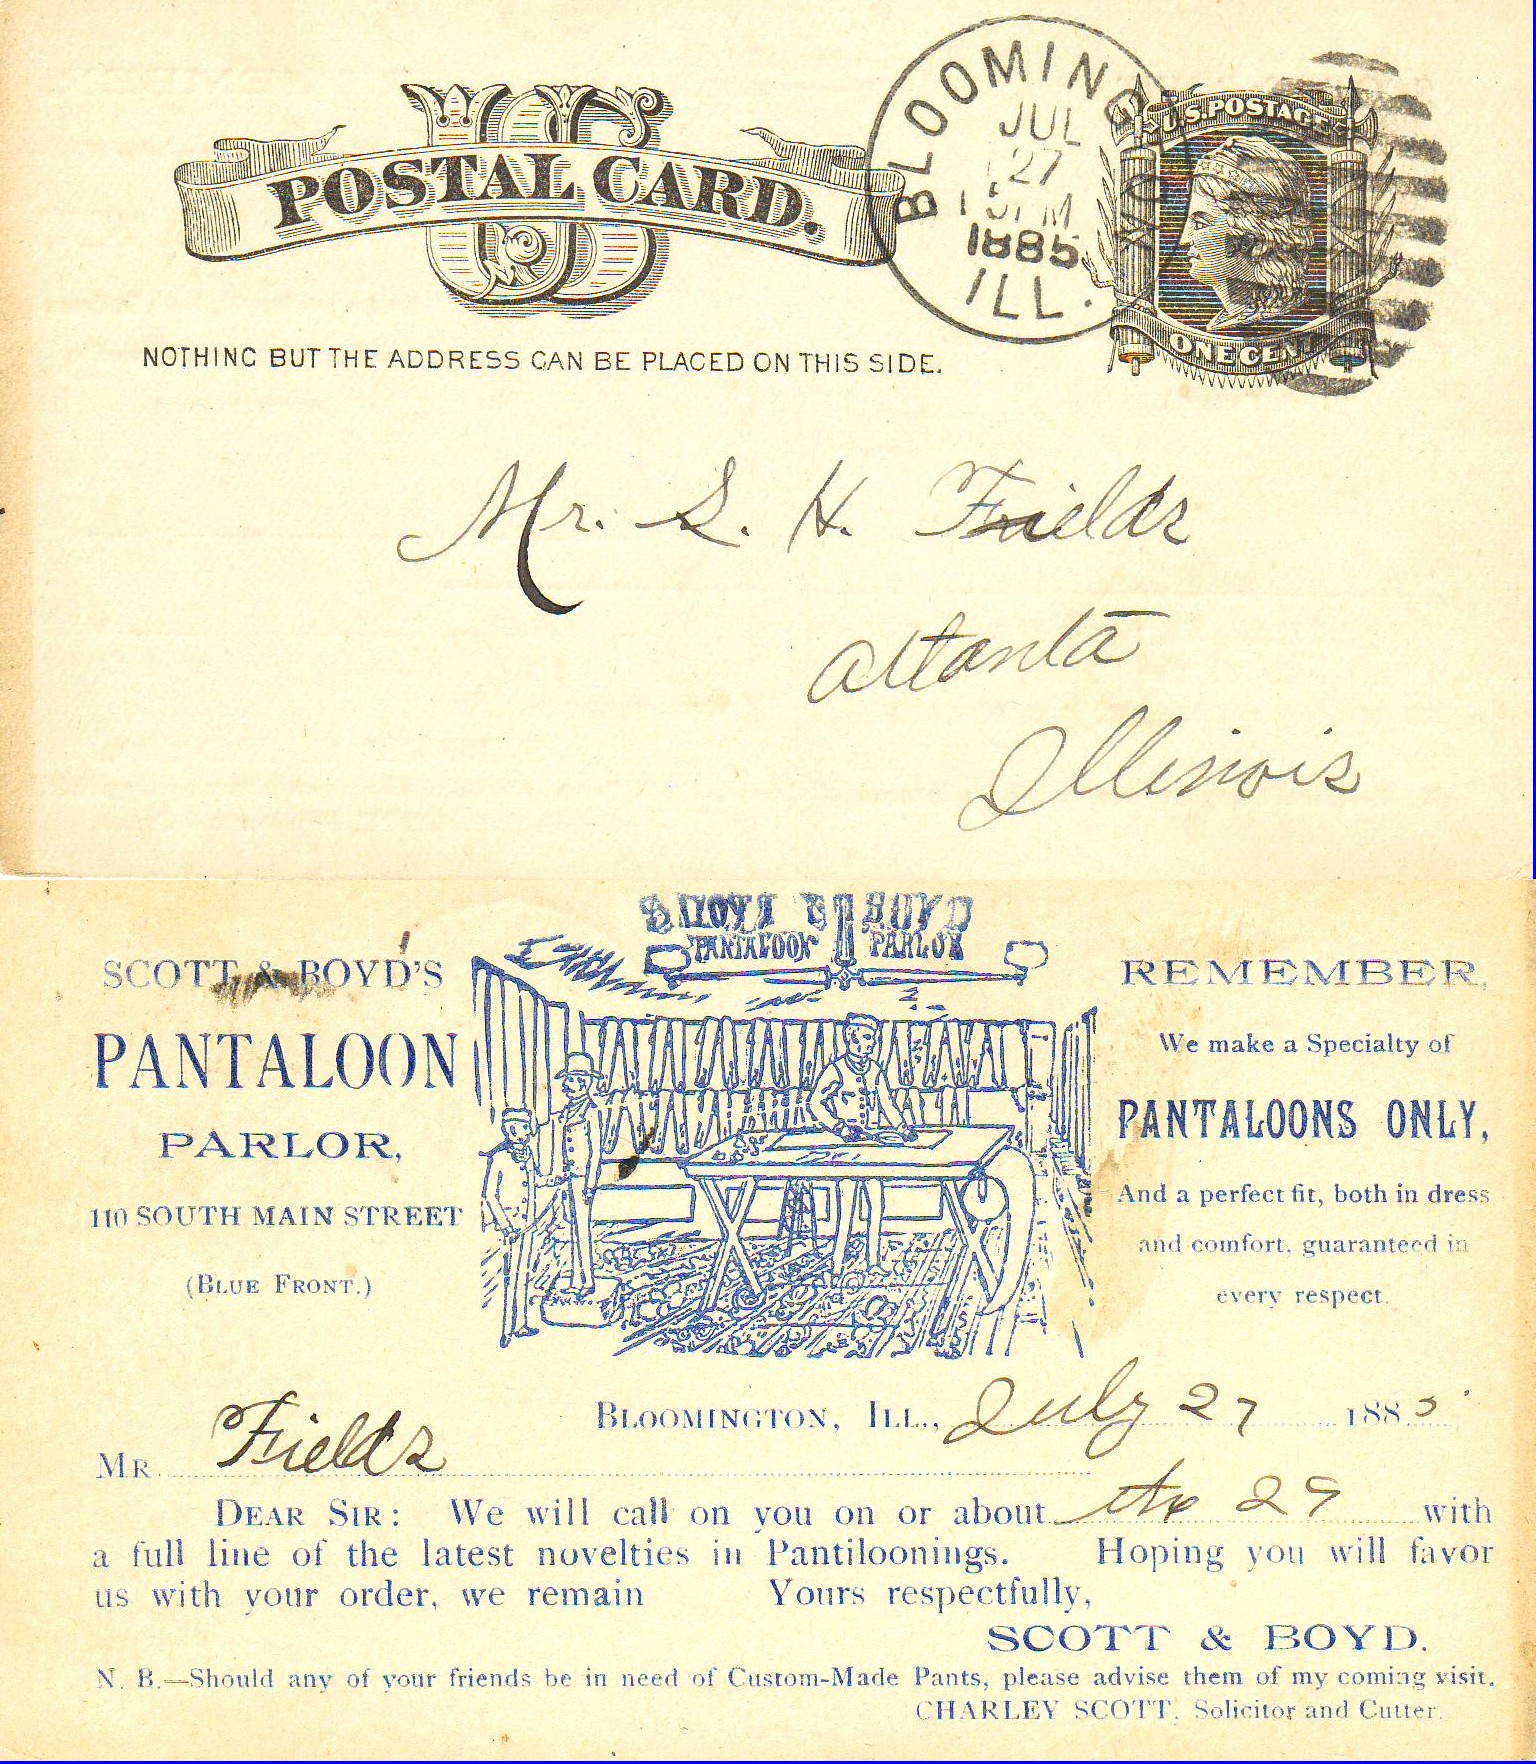 US
POSTAL CARD.
BLOOMING
JUL
27
PM
1885
ILL.
U.S. POSTAGE
ONE CENT
NOTHING BUT THE ADDRESS CAN BE PLACED ON THIS SIDE.
Mr. S. H. Fields
Atlanta
Illinois
SCOTT & BOYD
PANTALOON PARLOR
SCOTT & BOYD'S
PANTALOON
PARLOR,
110 SOUTH MAIN STREET
(BLUE FRONT.)
REMEMBER,
We make a Specialty of
PANTALOONS ONLY,
And a perfect fit, both in dress
and comfort, guaranteed in
every respect.
BLOOMINGTON, ILL., July 27 1885
MR. Fields
DEAR SIR: We will call on you on or about the 29 with
a full line of the latest novelties in Pantiloonings. Hoping you will favor
us with your order, we remain Yours respectfully,
SCOTT & BOYD.
N. B.—Should any of your friends be in need of Custom-Made Pants, please advise them of my coming visit.
CHARLEY SCOTT, Solicitor and Cutter.